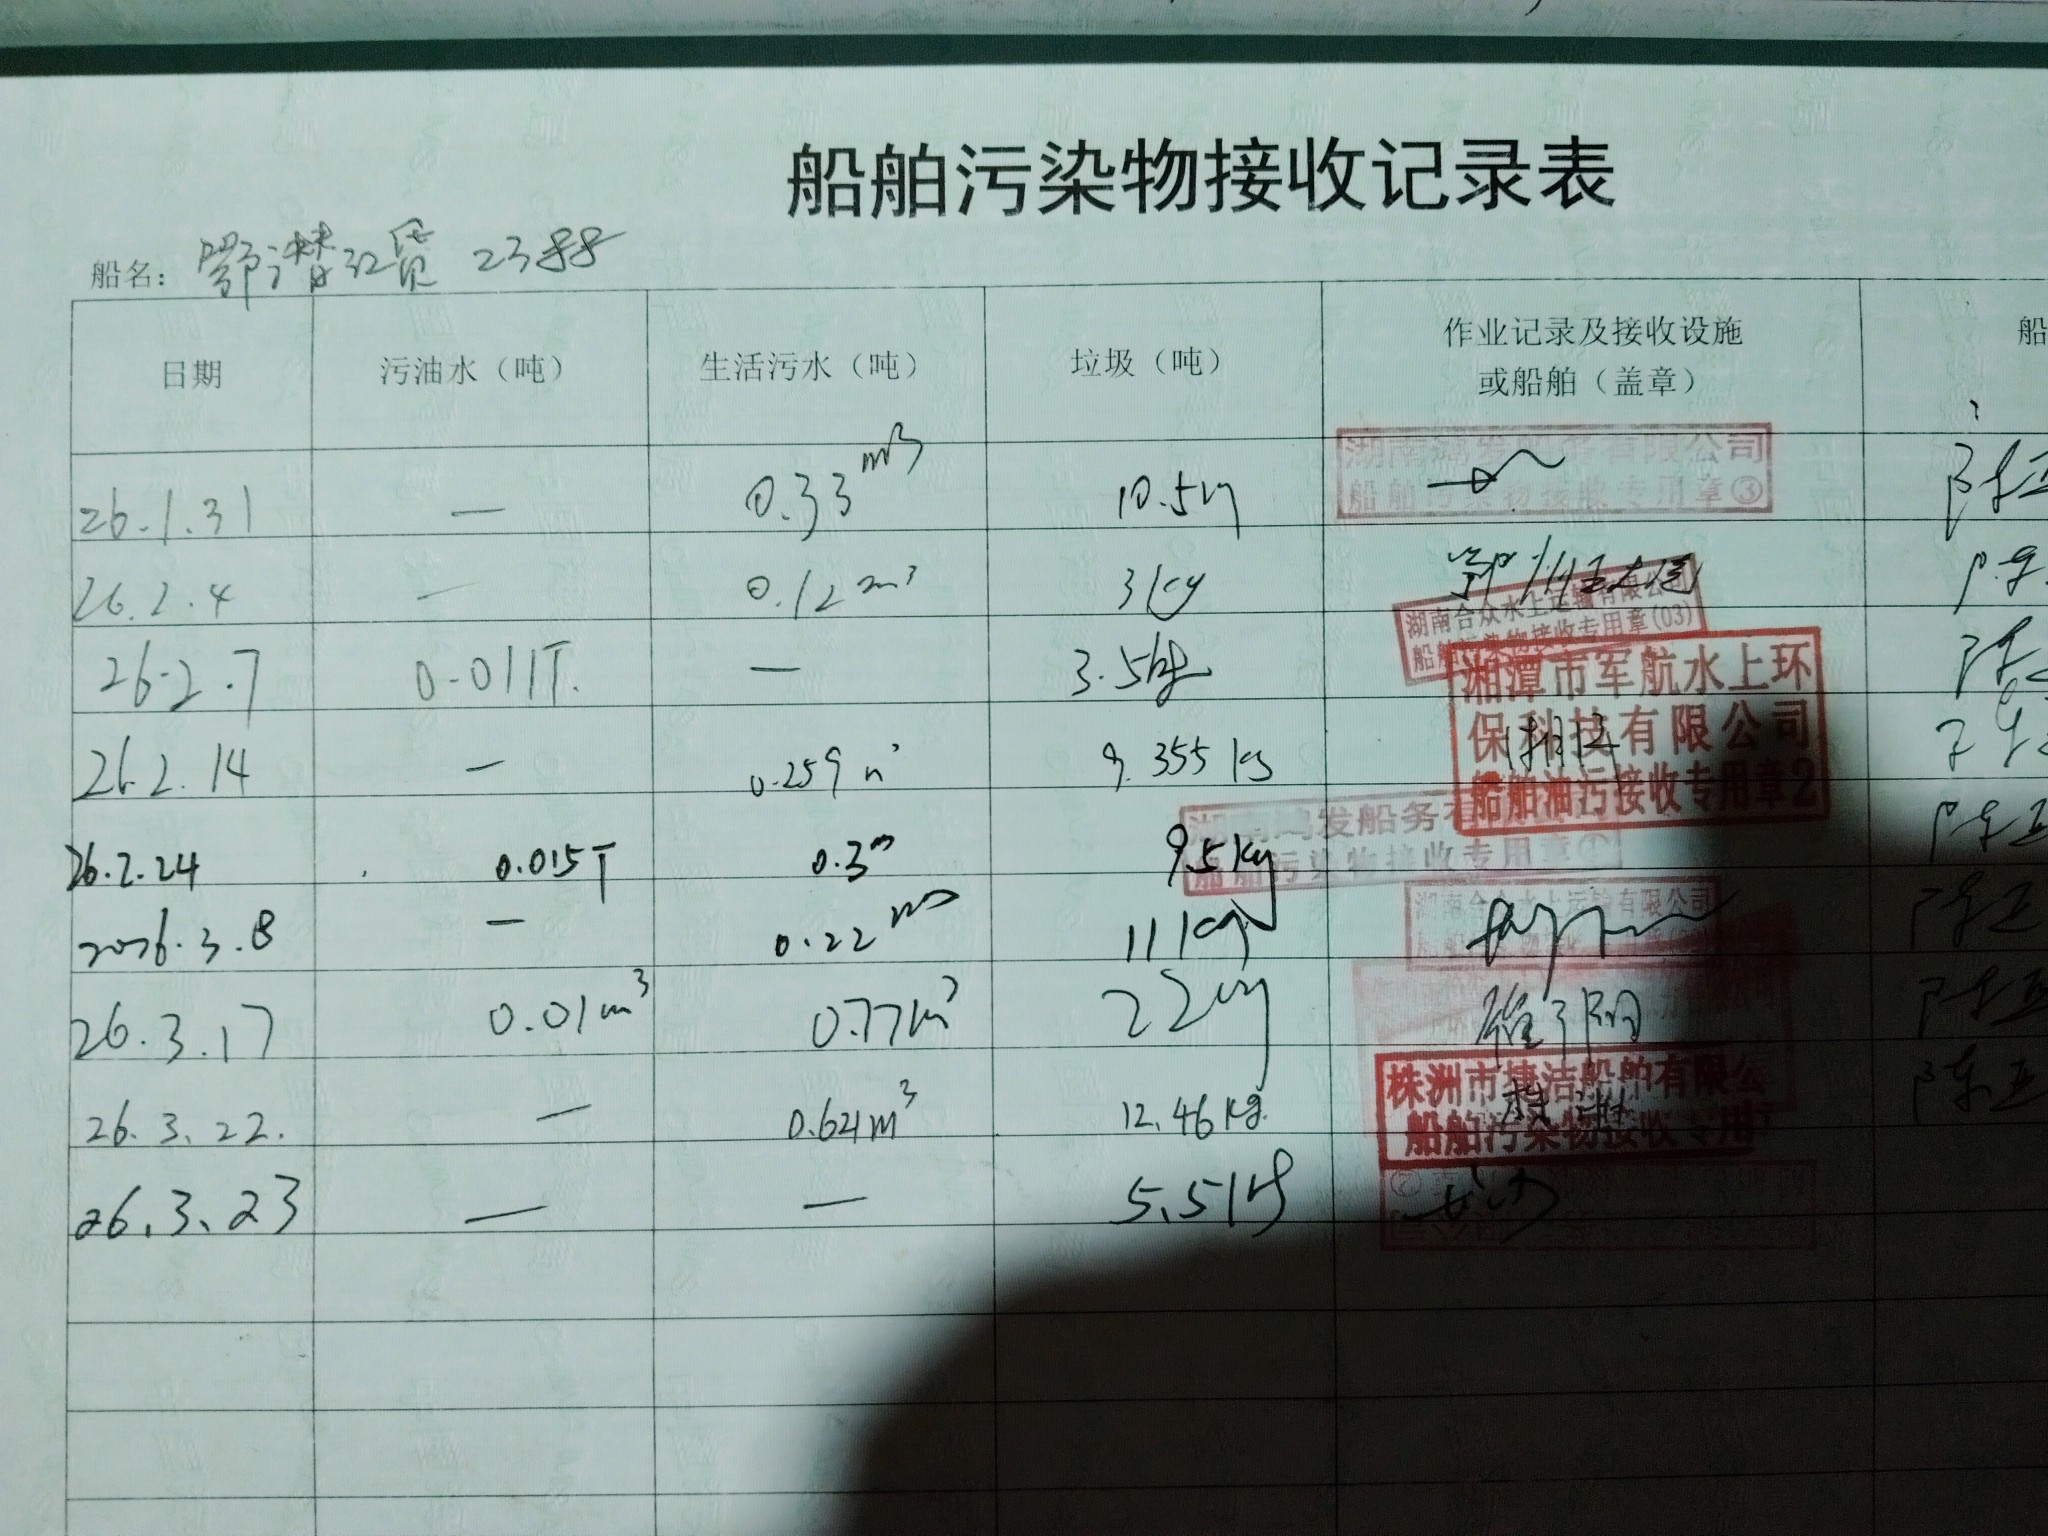 船舶污染物接收记录表
船名： 鄂潜江货 2388
日期 污油水（吨） 生活污水（吨） 垃圾（吨） 作业记录及接收设施或船舶（盖章） 船
26.1.31 — 0.33 m3 10.5kg
湖南鸿发船务有限公司
船舶污染物接收专用章③
26.2.4 — 0.12 m3 3kg
湖南合众水上运输有限公司
船舶污染物接收专用章(03)
26.2.7 0.011T. — 3.5kg
湘潭市军航水上环
保科技有限公司
船舶油污接收专用章2
26.2.14 — 0.259 m3 9.355 kg
湖南鸿发船务有
船舶污染物接收专用章①
26.2.24 0.015T 0.3m 9.5kg
湖南合众水上运输有限公司
2026.3.8 — 0.22 m3 11kg
26.3.17 0.01m3 0.77m3 22kg
26.3.22. — 0.621m3 12.46kg
株洲市捷洁船舶有限公
船舶污染物接收专用
26.3.23 — — 5.5kg